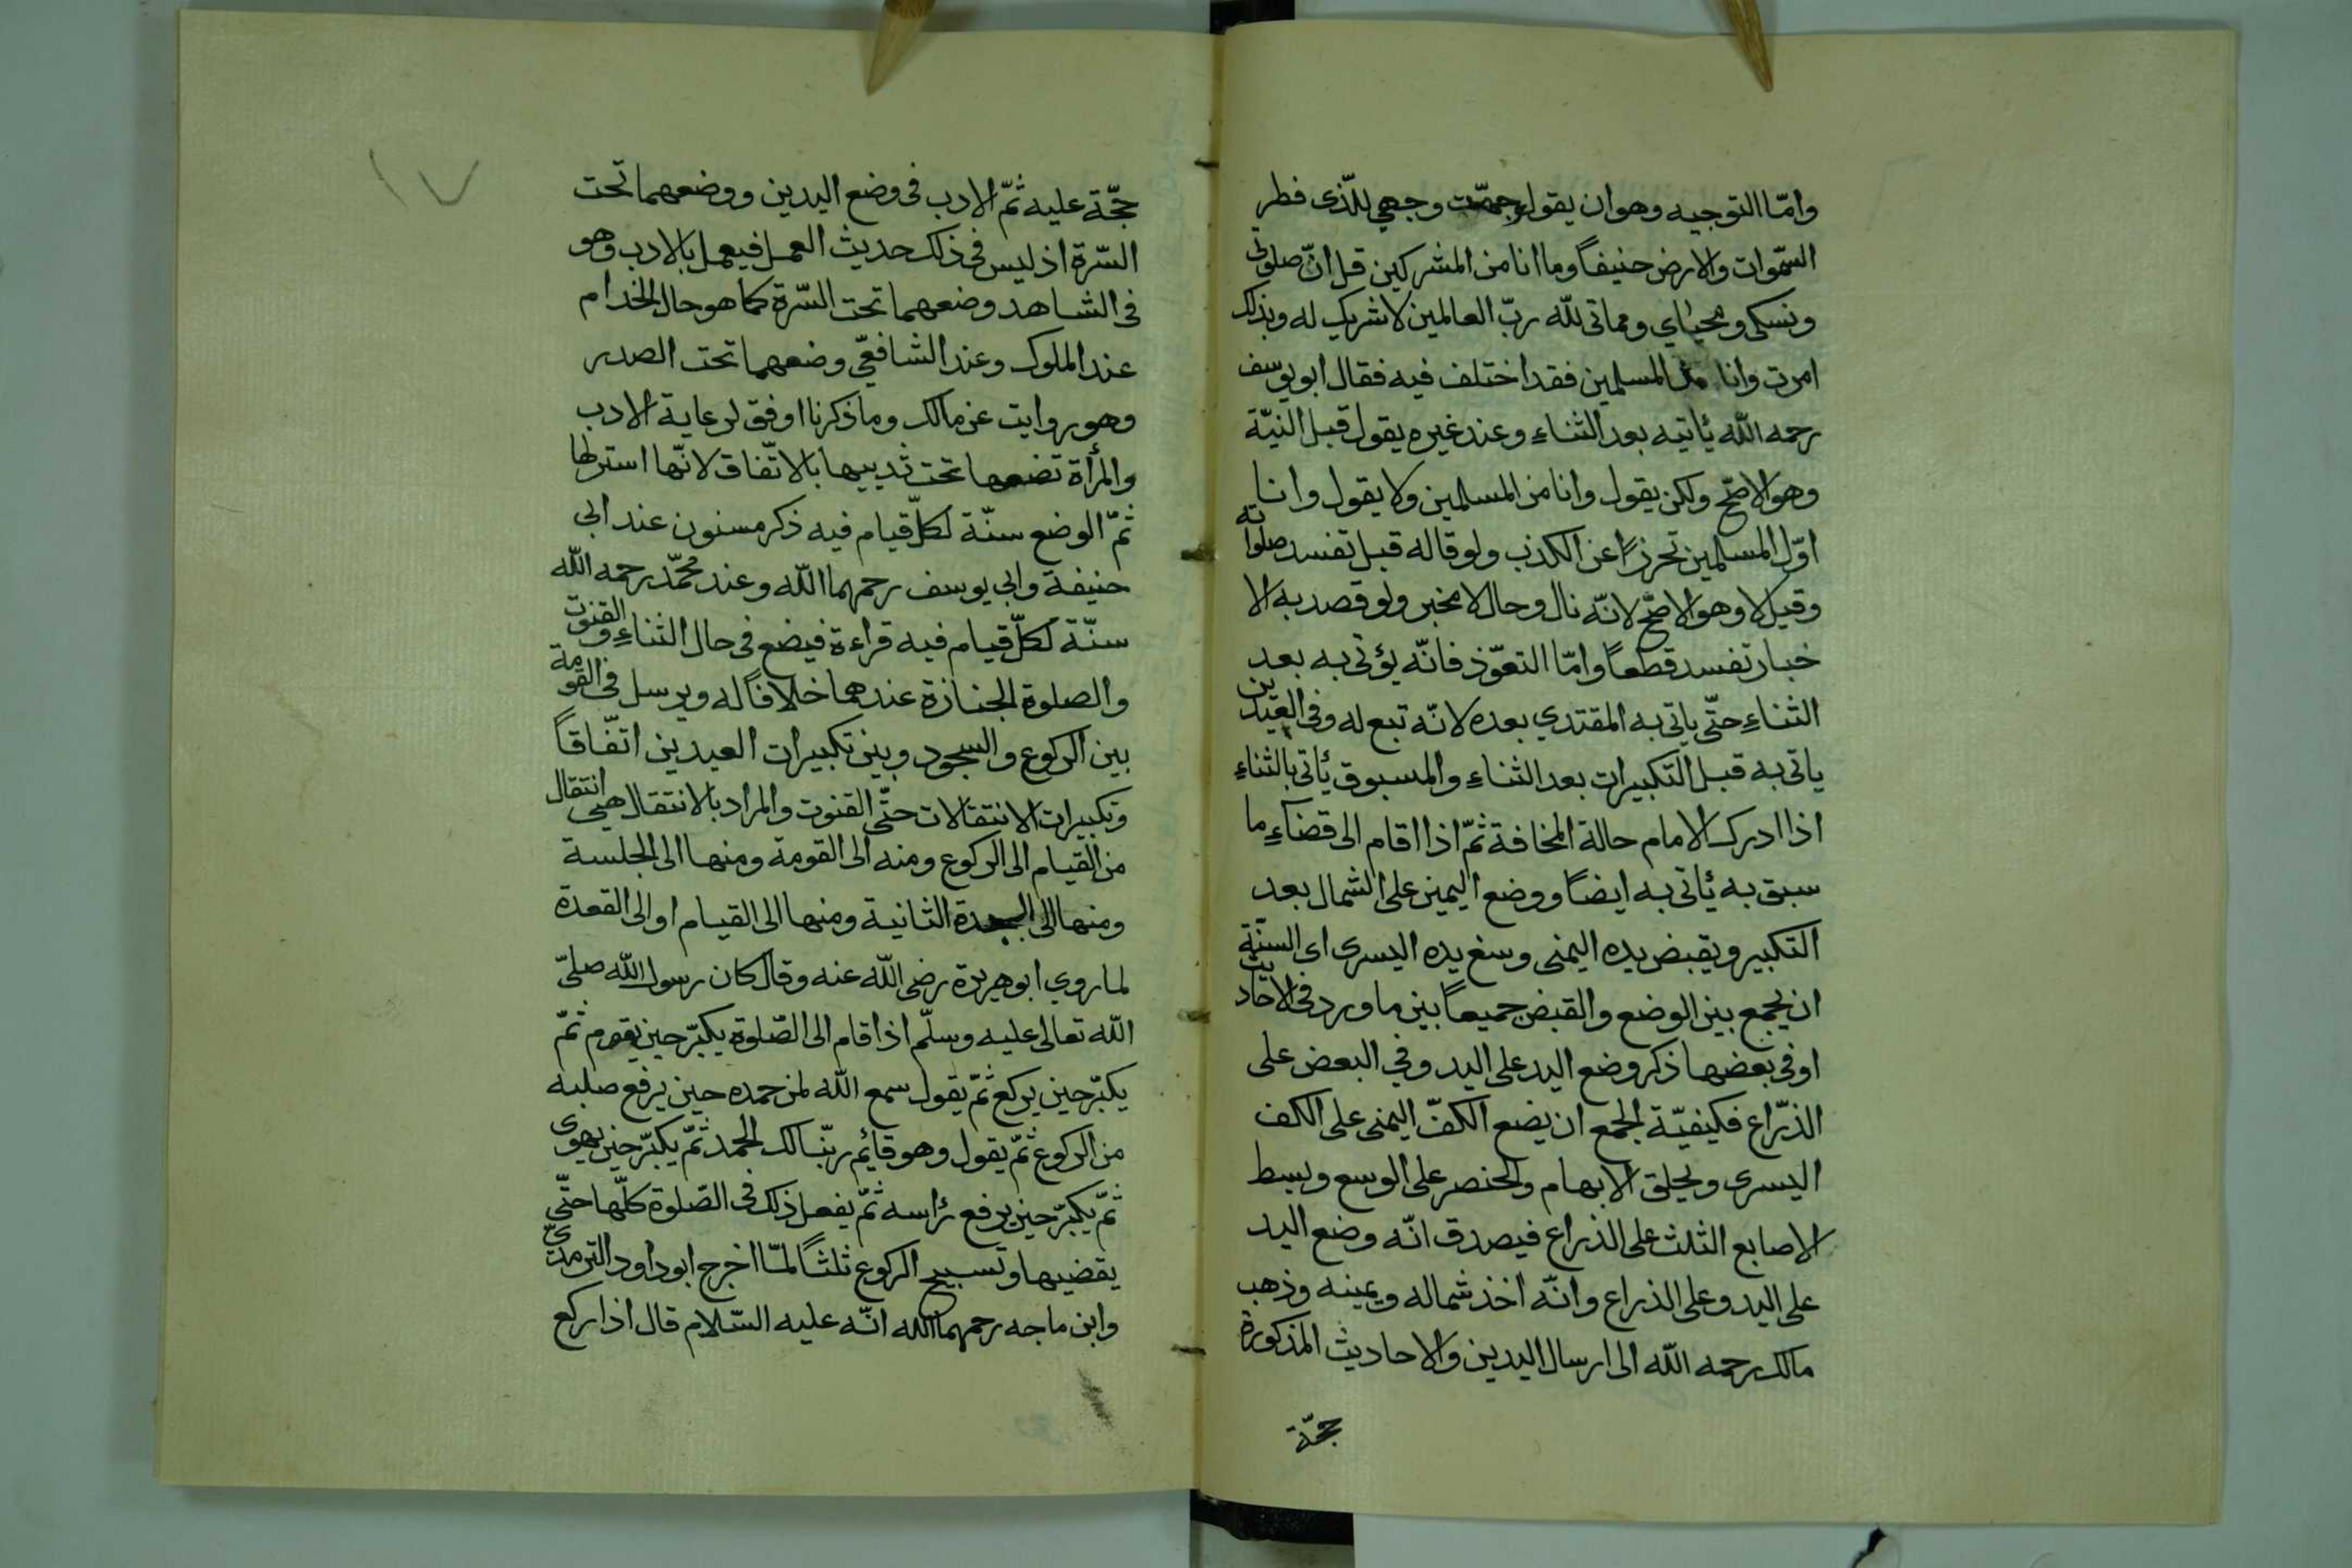 وامّا التوجيه وهو ان يقول وجهت وجهي للّذى فطر
السّموات والارض حنيفاً وما انا من المشركين قل انّ صلوتى
ونسكى ومحياي ومماتى للّه ربّ العالمين لا شريك له وبذلك
امرت وانا من المسلمين فقد اختلف فيه فقال ابو يوسف
رحمه اللّه يأتيه بعد الثناءِ وعند غيره يقول قبل النيّة
وهو الاصّح ولكن يقول وانا من المسلمين ولا يقول وانا
اوّل المسلمين تحرزاً عن الكذب ولو قاله قبل تفسد صلواته
وقيل لا وهو الاصّح لانّه نال وحال لا مخبر ولو قصد به الا
خبار تفسد قطعاً وامّا التعوّذ فانّه يؤتى به بعد
الثناءِ حتّى ياتى به المقتدي بعده لانّه تبع له وفى العيدين
ياتى به قبل التكبيرات بعد الثناءِ والمسبوق يأتى بالثناءِ
اذا ادرك الامام حالة المخافة ثمّ اذا اقام الى قضاءِ ما
سبق به يأتى به ايضاً ووضع اليمين على الشمال بعد
التكبير ويقبض يده اليمنى وسغ يده اليسرى اى السنّة
ان يجمع بين الوضع والقبض جميعاً بين ما ورد فى الاحاديث
او فى بعضها ذكر وضع اليد على اليد وفي البعض على
الذّراع فكيفيّة الجمع ان يضع الكفّ اليمنى على الكف
اليسرى ويحلق الابهام والخنصر على الوسع ويبسط
الاصابع الثلث على الذراع فيصدق انّه وضع اليد
على اليد وعلى الذراع وانّه اخذ شماله ويمينه وذهب
مالك رحمه اللّه الى ارسال اليدين والاحاديث المذكورة
حجّة
١٧
حجّة عليه ثمّ الادب فى وضع اليدين ووضعهما تحت
السّرة اذ ليس فى ذلك حديث العمل فيعمل بالادب وهو
فى الشاهد وضعهما تحت السّرة كما هو حال الخدام
عند الملوك وعند الشافعّي وضعهما تحت الصدر
وهو روايت عن مالك وما ذكرنا اوفق لرعاية الادب
والمرأة تضعها تحت ثدييها بالاتّفاق لانّها استر لها
ثمّ الوضع سنّة لكلّ قيام فيه ذكر مسنون عند ابى
حنيفة وابي يوسف رحمهما اللّه وعند محمّد رحمه اللّه
سنّة لكلّ قيام فيه قراءة فيضع فى حال الثناءِ والقنوت
والصلوة الجنازة عندهما خلافاً له ويرسل فى القومة
بين الركوع والسجود وبين تكبيرات العيدين اتّفاقاً
وتكبيرات الانتقالات حتّى القنوت والمراد بالانتقال هي انتقال
من القيام الى الركوع ومنه الى القومة ومنها الى الجلسة
ومنها الى السجدة الثانية ومنها الى القيام او الى القعدة
لما روي ابو هريرة رضى اللّه عنه وقال كان رسول اللّه صلىّ
اللّه تعالى عليه وسلّم اذا قام الى الصّلوة يكبّر حين يقوم ثمّ
يكبّر حين يركع ثمّ يقول سمع اللّه لمن حمده حين يرفع صلبه
من الركوع ثمّ يقول وهو قائم ربّنا لك الحمد ثمّ يكبّر حين يهوى
ثمّ يكبّر حين يرفع رأسه ثمّ يفعل ذلك فى الصّلوة كلّها حتّى
يقضيها وتسبيح الركوع ثلثاً لمّا اخرج ابو داود الترمذىّ
وابن ماجه رحمهما اللّه انّه عليه السّلام قال اذا ركع